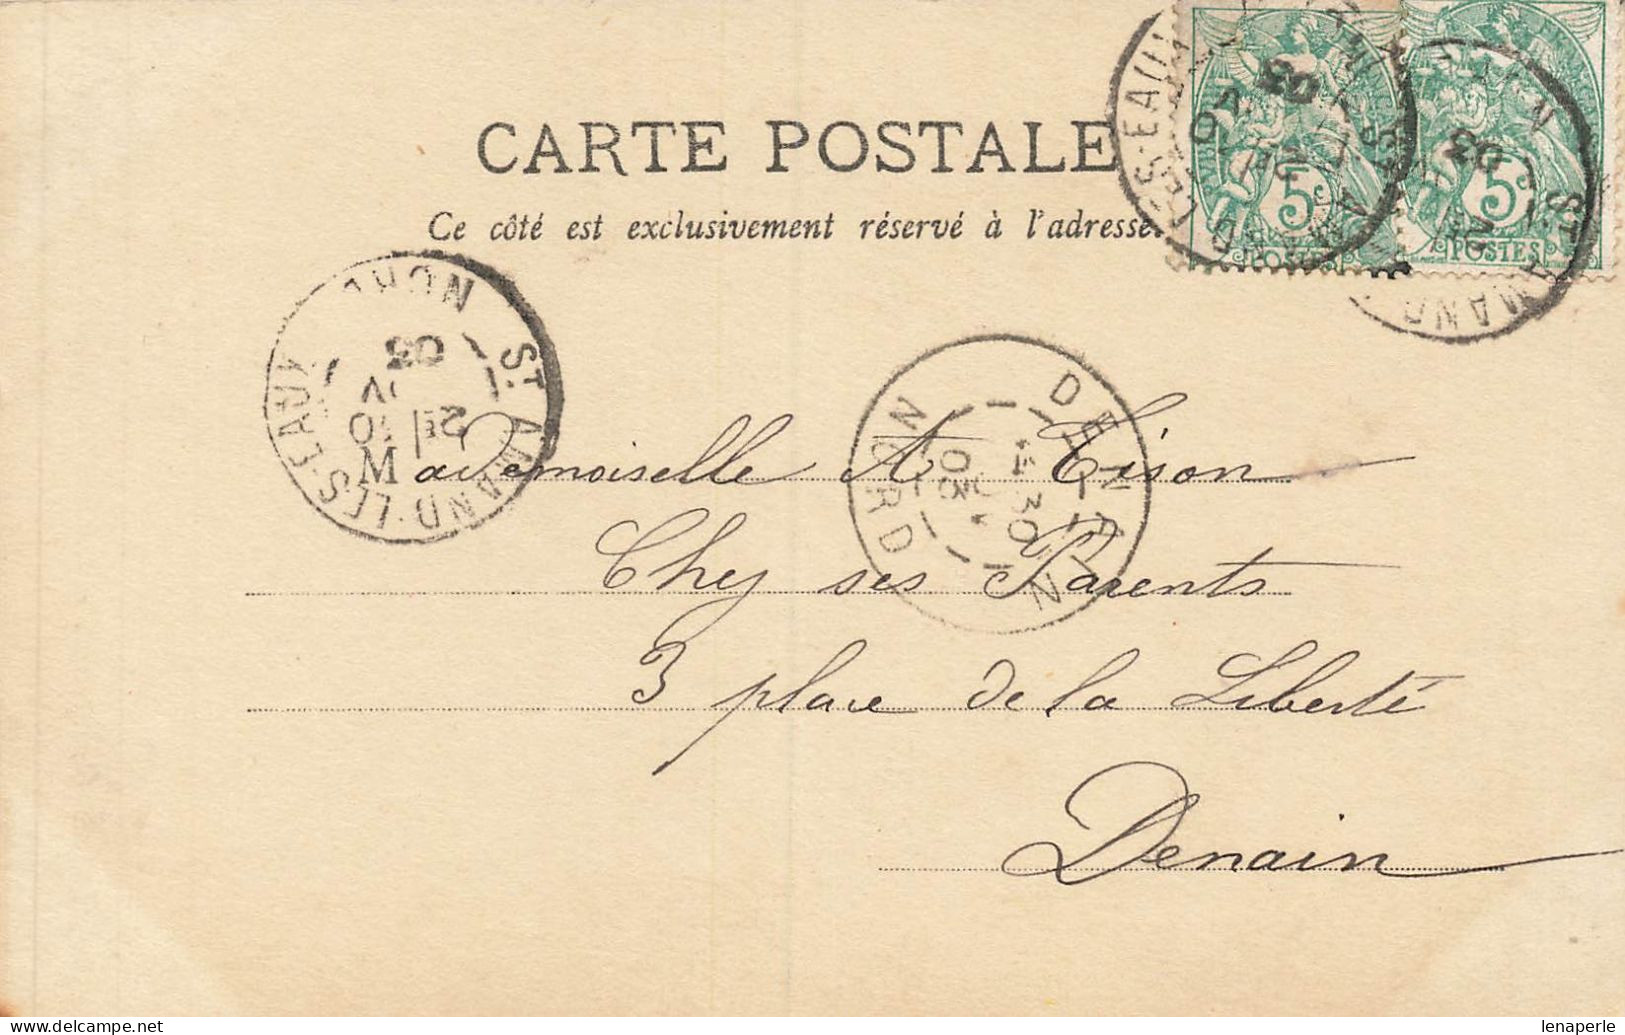 CARTE POSTALE
Ce côté est exclusivement réservé à l'adresse.
5c
POSTES
5c
POSTES
ST AMAND-LES-EAUX
NORD
03
DENAIN
NORD
03
Mademoiselle A Tison
Chez ses Parents
3 place de la Liberté
Denain
lenaperle